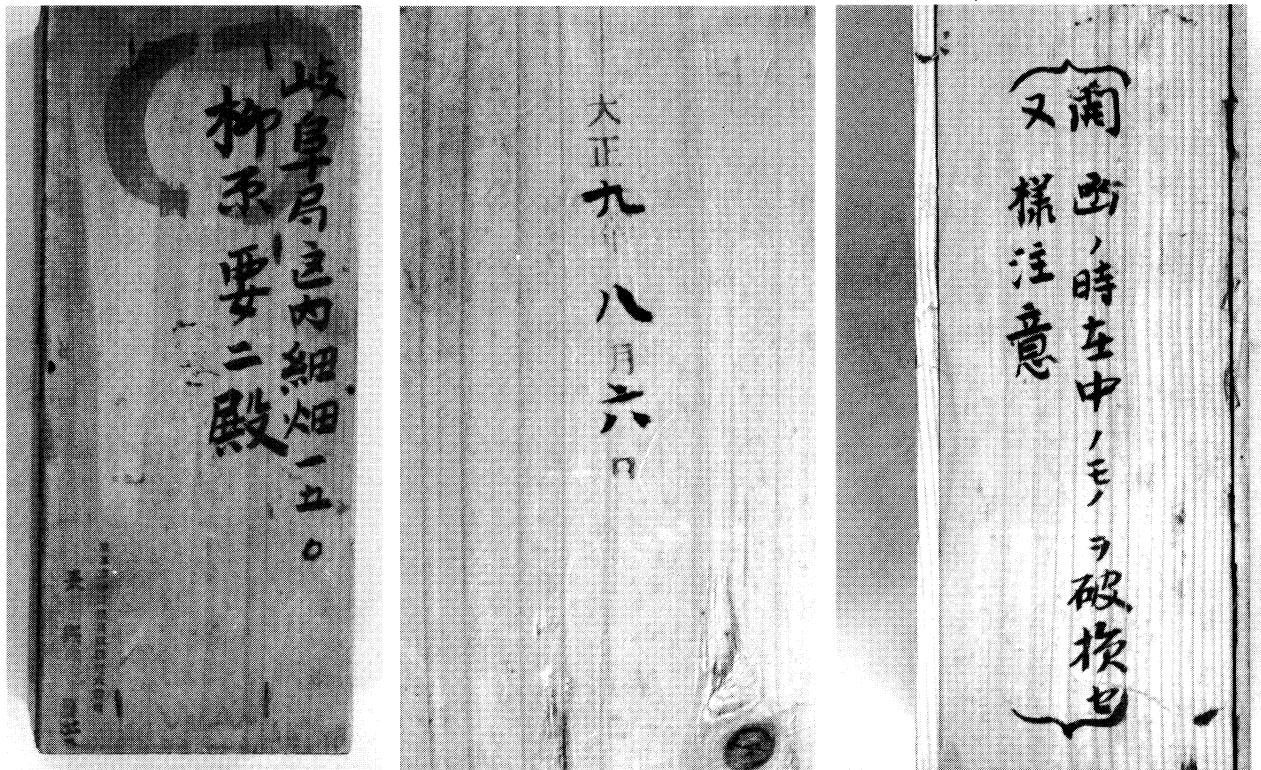 岐阜局区内細畑一五〇
柳原要二殿
大正九年八月六日
開凾ノ時在中ノモノヲ破損セ
ヌ様注意